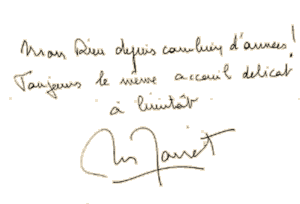 Mon Dieu depuis combien d'années !
Toujours le même acceuil délicat
à bientôt